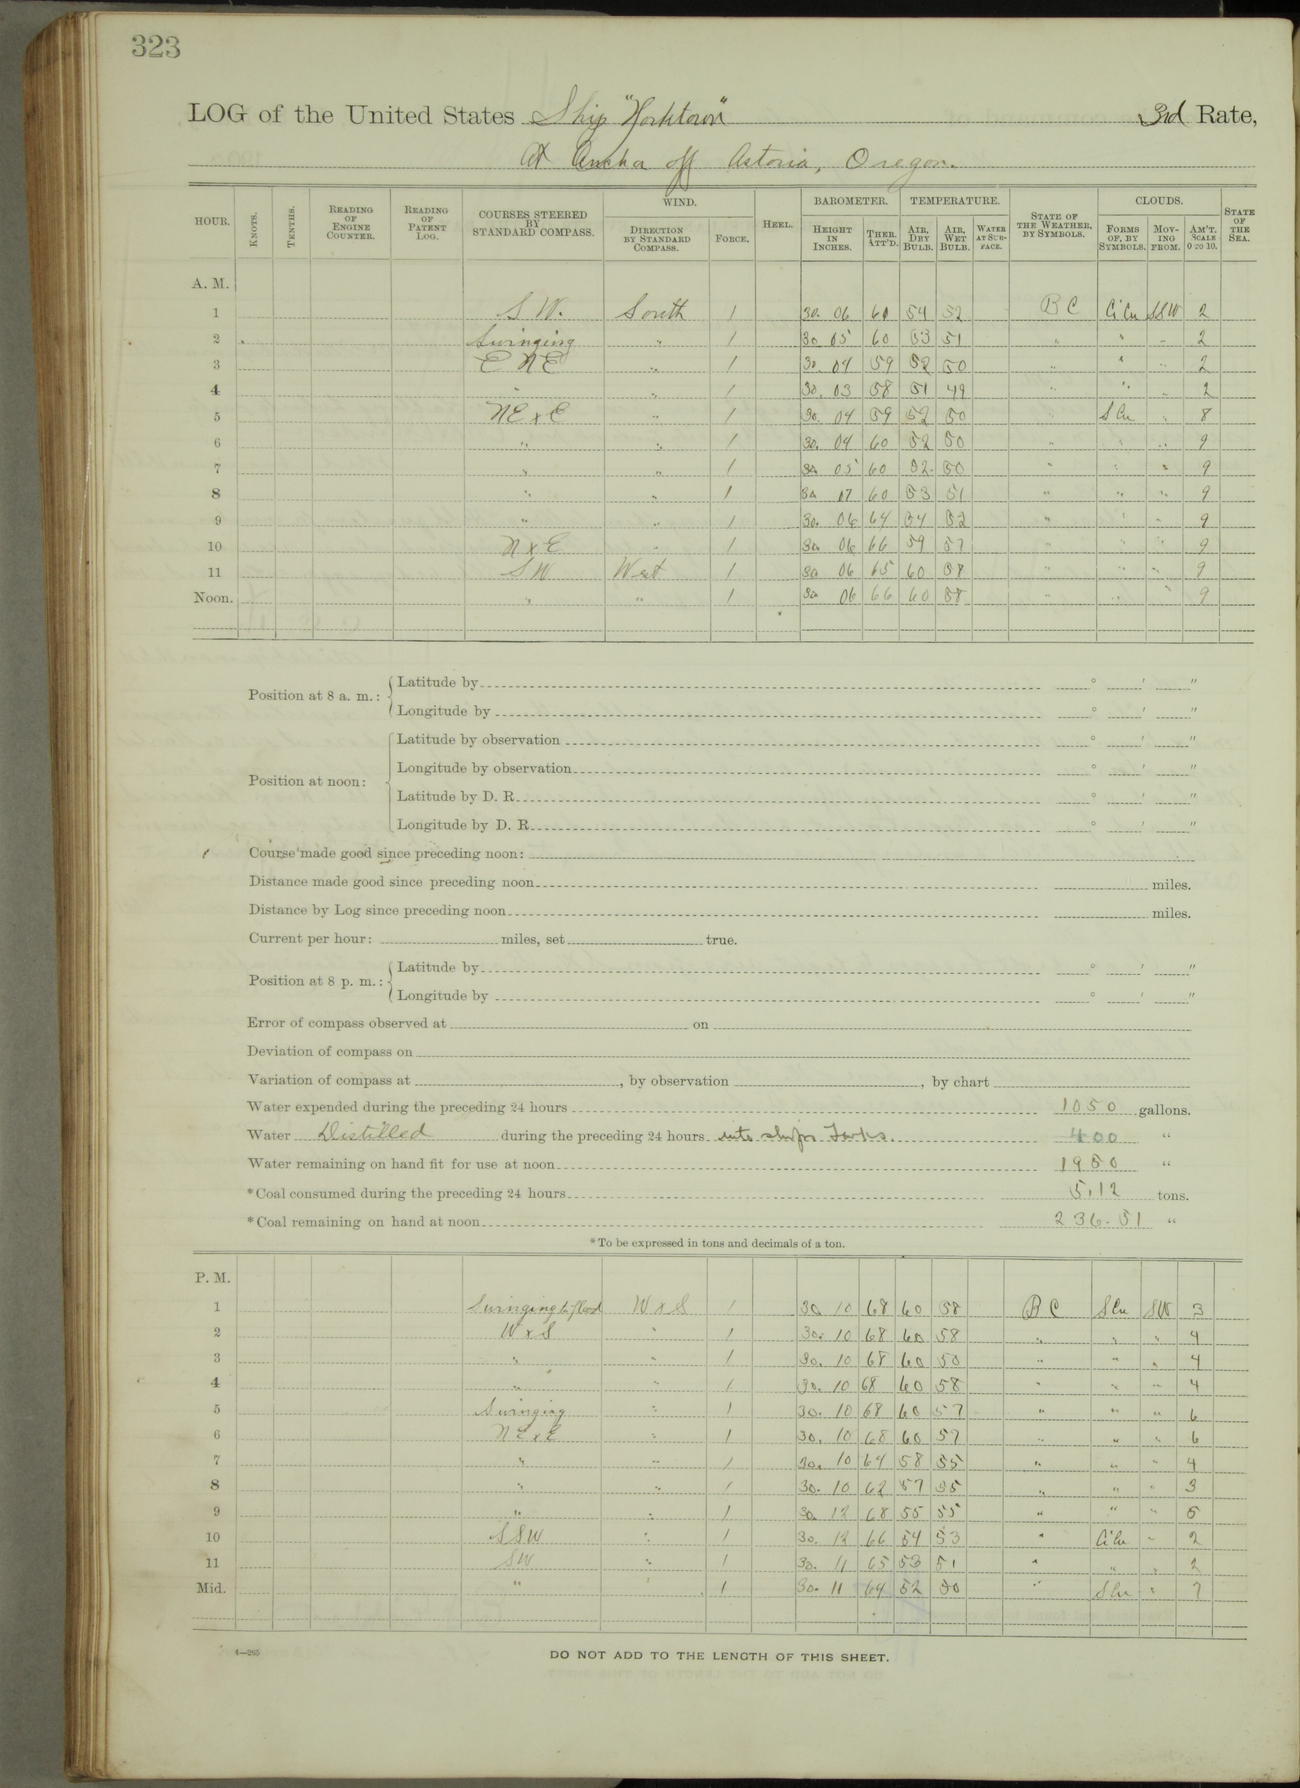 323
LOG of the United States Ship "Yorktown" 3rd Rate,
At Anchor off Astoria, Oregon.
HOUR. KNOTS. TENTHS. READING OF ENGINE COUNTER. READING OF PATENT LOG. COURSES STEERED BY STANDARD COMPASS. WIND. DIRECTION BY STANDARD COMPASS. FORCE. HEEL. BAROMETER. HEIGHT IN INCHES. THER. ATT'D. TEMPERATURE. AIR, DRY BULB. AIR, WET BULB. WATER AT SURFACE. STATE OF THE WEATHER, BY SYMBOLS. CLOUDS. FORMS OF, BY SYMBOLS. MOVING FROM. AM'T. SCALE 0 TO 10. STATE OF THE SEA.
A. M.
1 S W. South 1 30. 06 60 54 52 B C Ci Cu SSW 2
2 Swinging " 1 30 05 60 53 51 " " " 2
3 E N E " 1 30. 04 59 52 50 " " " 2
4 " " 1 30. 03 58 51 49 " " " 2
5 NE x E " 1 30. 04 59 52 50 " S Cu " 8
6 " " 1 30. 04 60 52 50 " " " 9
7 " " 1 30 05 60 52 50 " " " 9
8 " " 1 30 07 60 53 51 " " " 9
9 " " 1 30. 06 64 54 52 " " " 9
10 N x E " 1 30 06 66 59 57 " " " 9
11 SW West 1 30 06 65 60 58 " " " 9
Noon. " " 1 30 06 66 60 58 " " " 9
Position at 8 a. m.: Latitude by ° ' "
Longitude by ° ' "
Position at noon: Latitude by observation ° ' "
Longitude by observation ° ' "
Latitude by D. R. ° ' "
Longitude by D. R. ° ' "
Course made good since preceding noon:
Distance made good since preceding noon miles.
Distance by Log since preceding noon miles.
Current per hour: miles, set true.
Position at 8 p. m.: Latitude by ° ' "
Longitude by ° ' "
Error of compass observed at on
Deviation of compass on
Variation of compass at , by observation , by chart
Water expended during the preceding 24 hours 1050 gallons.
Water Distilled during the preceding 24 hours into ships Tanks. 400 "
Water remaining on hand fit for use at noon 1950 "
*Coal consumed during the preceding 24 hours 5.12 tons.
*Coal remaining on hand at noon 236.51 "
*To be expressed in tons and decimals of a ton.
P. M.
1 Swinging to flood W x S 1 30 10 68 60 58 B C S Cu SW 3
2 W x S " 1 30. 10 68 60 58 " " " 4
3 " " 1 30. 10 68 60 50 " " " 4
4 " " 1 30. 10 68 60 58 " " " 4
5 Swinging " 1 30. 10 68 60 57 " " " 6
6 NE x E " 1 30. 10 68 60 57 " " " 6
7 " " 1 30. 10 64 58 55 " " " 4
8 " " 1 30. 10 62 57 55 " " " 3
9 " " 1 30 12 68 55 55 " " " 5
10 SSW " 1 30. 12 66 54 53 " Ci Cu " 2
11 SW " 1 30. 11 65 53 51 " " " 2
Mid. " " 1 30. 11 64 52 50 " S Cu " 7
4—265
DO NOT ADD TO THE LENGTH OF THIS SHEET.